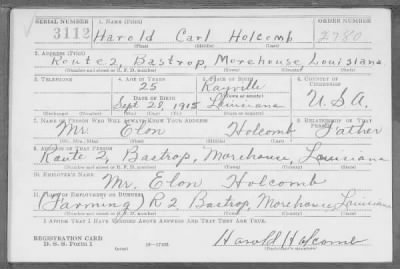 SERIAL NUMBER 1. NAME (Print) ORDER NUMBER
3112 Harold Carl Holcomb 2780
(First) (Middle) (Last)
2. ADDRESS (Print)
Route 2, Bastrop, Morehouse Louisiana
3. TELEPHONE 4. AGE IN YEARS 5. PLACE OF BIRTH 6. COUNTRY OF CITIZENSHIP
25 Rayville
DATE OF BIRTH
Sept 28, 1915 Louisiana U.S.A.
(Exchange) (Number) (Mo.) (Day) (Yr.) (State or country)
7. NAME OF PERSON WHO WILL ALWAYS KNOW YOUR ADDRESS 8. RELATIONSHIP OF THAT PERSON
Mr. Elon Holcomb Father
(Mr., Mrs., Miss) (First) (Middle) (Last)
9. ADDRESS OF THAT PERSON
Route 2, Bastrop, Morehouse, Louisiana
10. EMPLOYER'S NAME
Mr. Elon Holcomb
11. PLACE OF EMPLOYMENT OR BUSINESS
(Farming) R 2 Bastrop, Morehouse, Louisiana
I AFFIRM THAT I HAVE VERIFIED ABOVE ANSWERS AND THAT THEY ARE TRUE.
REGISTRATION CARD
D. S. S. Form 1 (over) Harold Holcomb